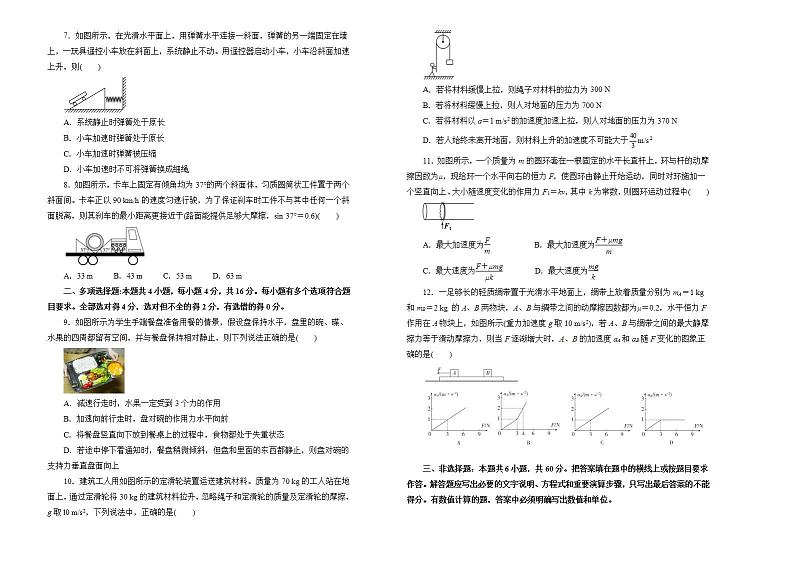 7．如图所示，在光滑水平面上，用弹簧水平连接一斜面，弹簧的另一端固定在墙
上，一玩具遥控小车放在斜面上，系统静止不动。用遥控器启动小车，小车沿斜面加速
上升，则(　　)
A．系统静止时弹簧处于原长
B．小车加速时弹簧处于原长
C．小车加速时弹簧被压缩
D．小车加速时不可将弹簧换成细绳
8．如图所示，卡车上固定有倾角均为 37°的两个斜面体，匀质圆筒状工件置于两个
斜面间。卡车正以 90 km/h 的速度匀速行驶，为了保证刹车时工件不与其中任何一个斜
面脱离，则其刹车的最小距离更接近于(路面能提供足够大摩擦，sin 37°＝0.6)(　　)
37° 37°
A．33 m　B．43 m　C．53 m　D．63 m
二、多项选择题:本题共 4 小题，每小题 4 分，共 16 分。每小题有多个选项符合题
目要求。全部选对得 4 分，选对但不全的得 2 分，有选错的得 0 分。
9．如图所示为学生手端餐盘准备用餐的情景，假设盘保持水平，盘里的碗、碟、
水果的四周都留有空间，并与餐盘保持相对静止。则下列说法正确的是(　　)
A．减速行走时，水果一定受到 3 个力的作用
B．加速向前行走时，盘对碗的作用力水平向前
C．将餐盘竖直向下放到餐桌上的过程中，食物都处于失重状态
D．若途中停下看通知时，餐盘稍微倾斜，但盘和里面的东西都静止，则盘对碗的
支持力垂直盘面向上
10．建筑工人用如图所示的定滑轮装置运送建筑材料。质量为 70 kg 的工人站在地
面上，通过定滑轮将 30 kg 的建筑材料拉升，忽略绳子和定滑轮的质量及定滑轮的摩擦，
g 取10 m/s²，下列说法中，正确的是(　　)
A．若将材料缓慢上拉，则绳子对材料的拉力为 300 N
B．若将材料缓慢上拉，则人对地面的压力为 700 N
C．若将材料以 a＝1 m/s² 的加速度加速上拉，则人对地面的压力为 370 N
D．若人始终未离开地面，则材料上升的加速度不可能大于40/3 m/s²
11．如图所示，一个质量为 m 的圆环套在一根固定的水平长直杆上，环与杆的动摩
擦因数为μ，现给环一个水平向右的恒力 F，使圆环由静止开始运动，同时对环施加一
个竖直向上、大小随速度变化的作用力 F₁＝kv，其中 k 为常数，则圆环运动过程中(　　)
F₁
A．最大加速度为F/m　B．最大加速度为(F＋μmg)/m
C．最大速度为(F＋μmg)/μk　D．最大速度为mg/k
12．一足够长的轻质绸带置于光滑水平地面上，绸带上放着质量分别为 mA＝1 kg
和 mB＝2 kg 的 A、B 两物块，A、B 与绸带之间的动摩擦因数都为μ＝0.2，水平恒力 F
作用在 A 物块上，如图所示(重力加速度 g 取 10 m/s²)，若 A、B 与绸带之间的最大静摩
擦力等于滑动摩擦力，则当 F 逐渐增大时，A、B 的加速度 aA 和 aB 随 F 变化的图象正
确的是(　　)
F A B
aA/(m·s⁻²) 3 2 1 0 3 6 9 F/N A
aA/(m·s⁻²) 3 2 1 0 3 4 6 9 F/N B
aB/(m·s⁻²) 3 2 1 0 3 6 9 F/N C
aB/(m·s⁻²) 3 2 1 0 3 6 9 F/N D
三、非选择题：本题共 6 小题，共 60 分。把答案填在题中的横线上或按题目要求
作答。解答题应写出必要的文字说明、方程式和重要演算步骤，只写出最后答案的不能
得分。有数值计算的题，答案中必须明确写出数值和单位。